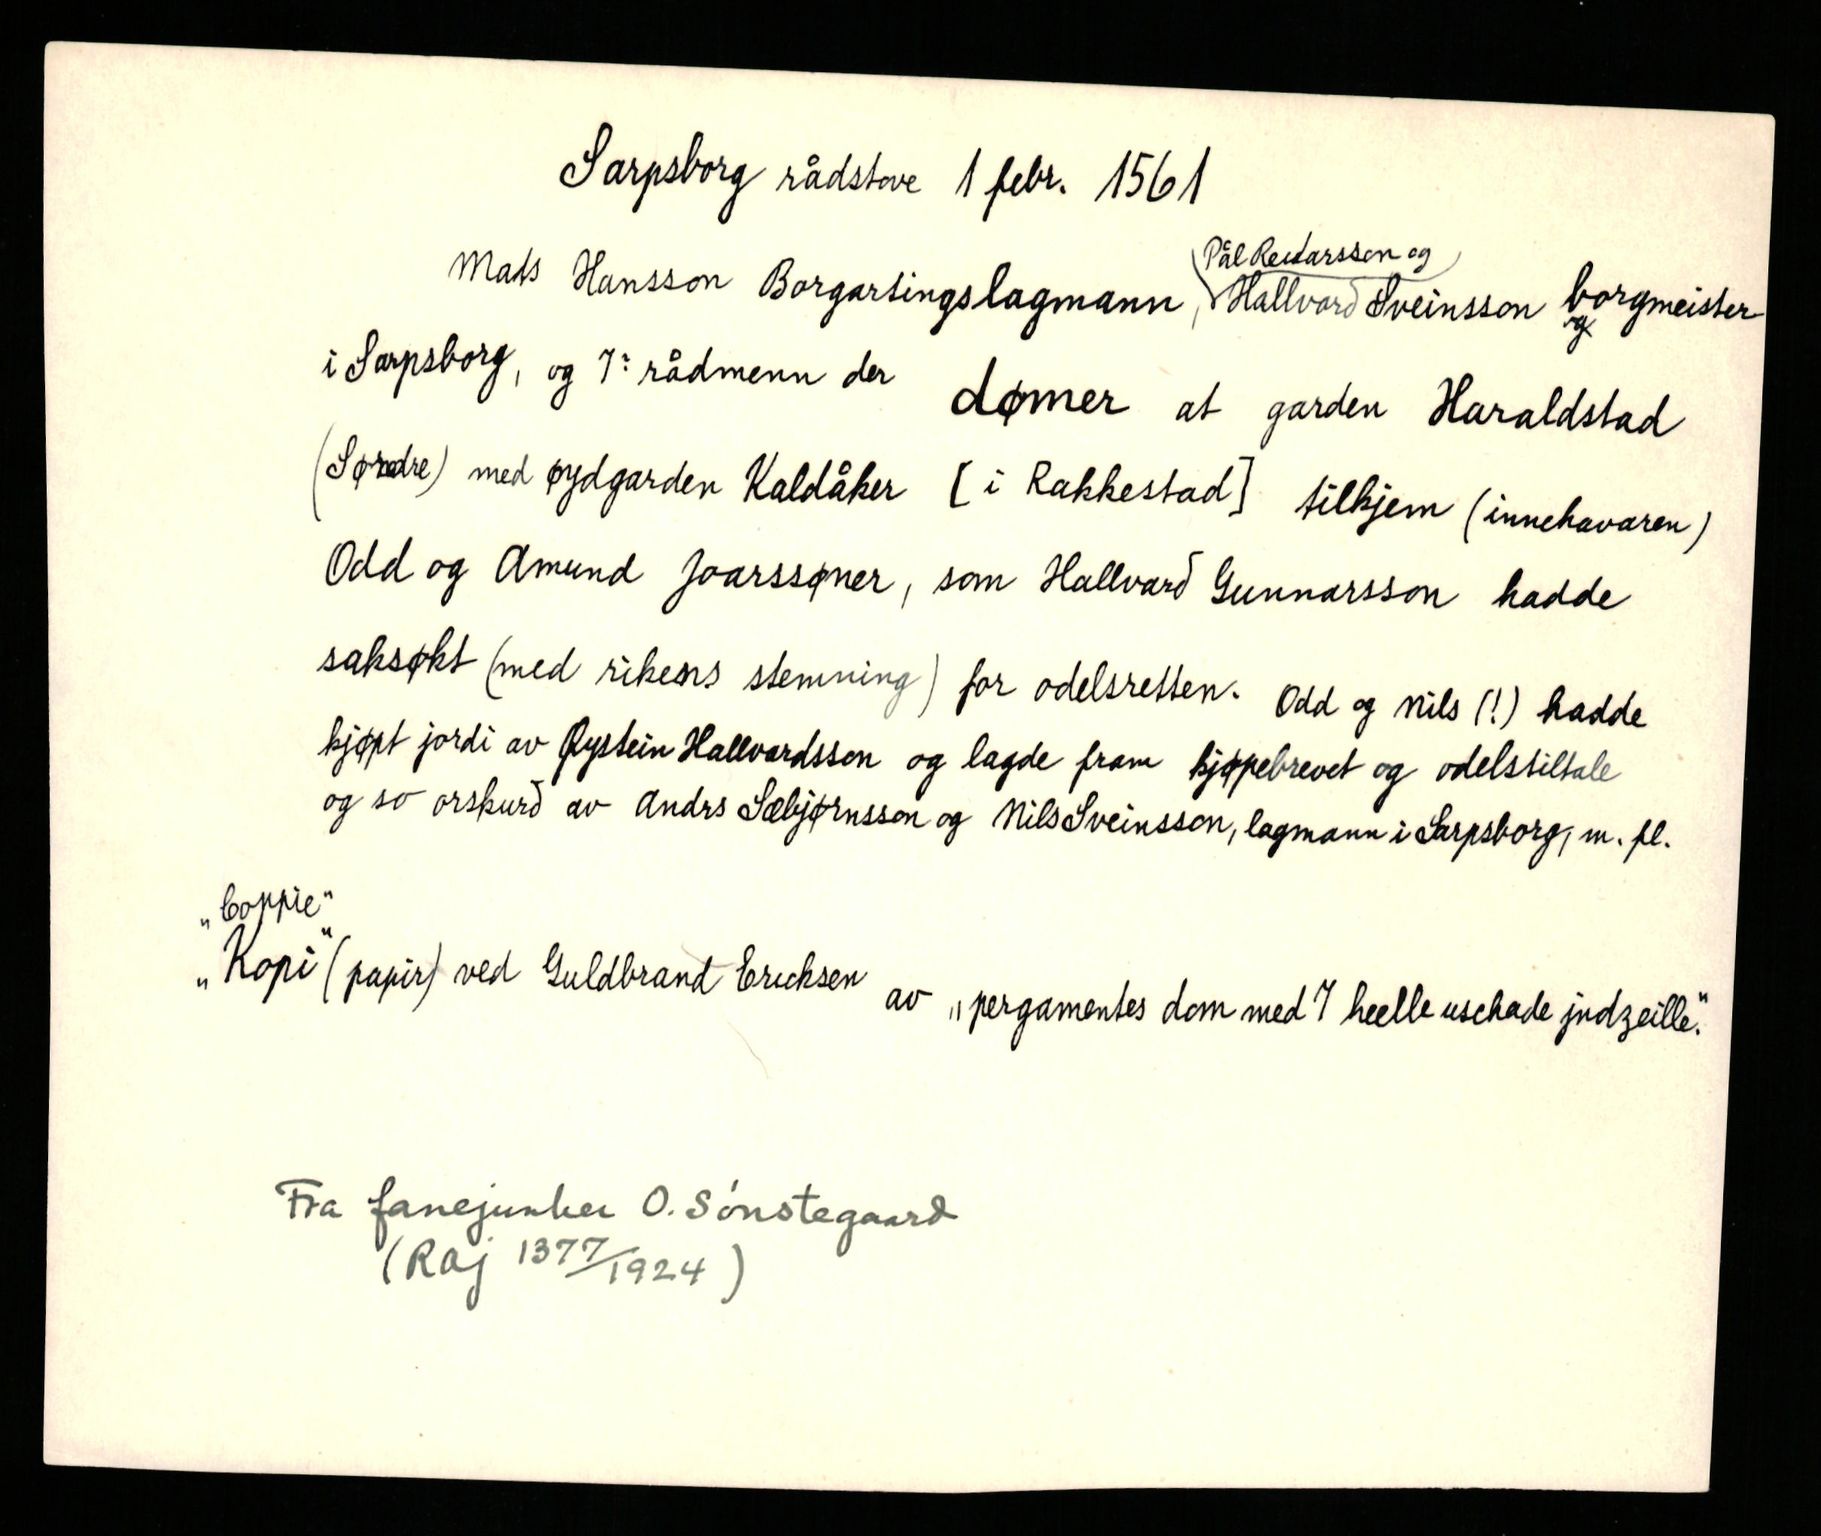 Sarpsborg rådstove 1 febr. 1561
Pål Reidarsson og
Mats Hansson Borgartingslagmann, Hallvard Sveinsson borgmeister
og
i Sarpsborg, og 7 rådmenn der dømer at garden Haraldstad
(Søndre) med øydgarden Kaldåker [i Rakkestad] tilkjem (innehavaren)
Odd og Amund Joarssøner, som Hallvard Gunnarsson hadde
saksøkt (med rikens stemning) for odelsretten. Odd og Nils (!) hadde
kjøpt jordi av Øystein Hallvardsson og lagde fram kjøpebrevet og odelstiltale
og so orskurd av Andrs Sæbjørnsson og Nils Sveinsson, lagmann i Sarpsborg, m. fl.
„Coppie"
„Kopi" (papir) ved Guldbrand Ericksen av „pergamentes dom med 7 heelle uschade jndzeille".
Fra fanejunker O. Sónstegaard
(Raj 1377/1924)